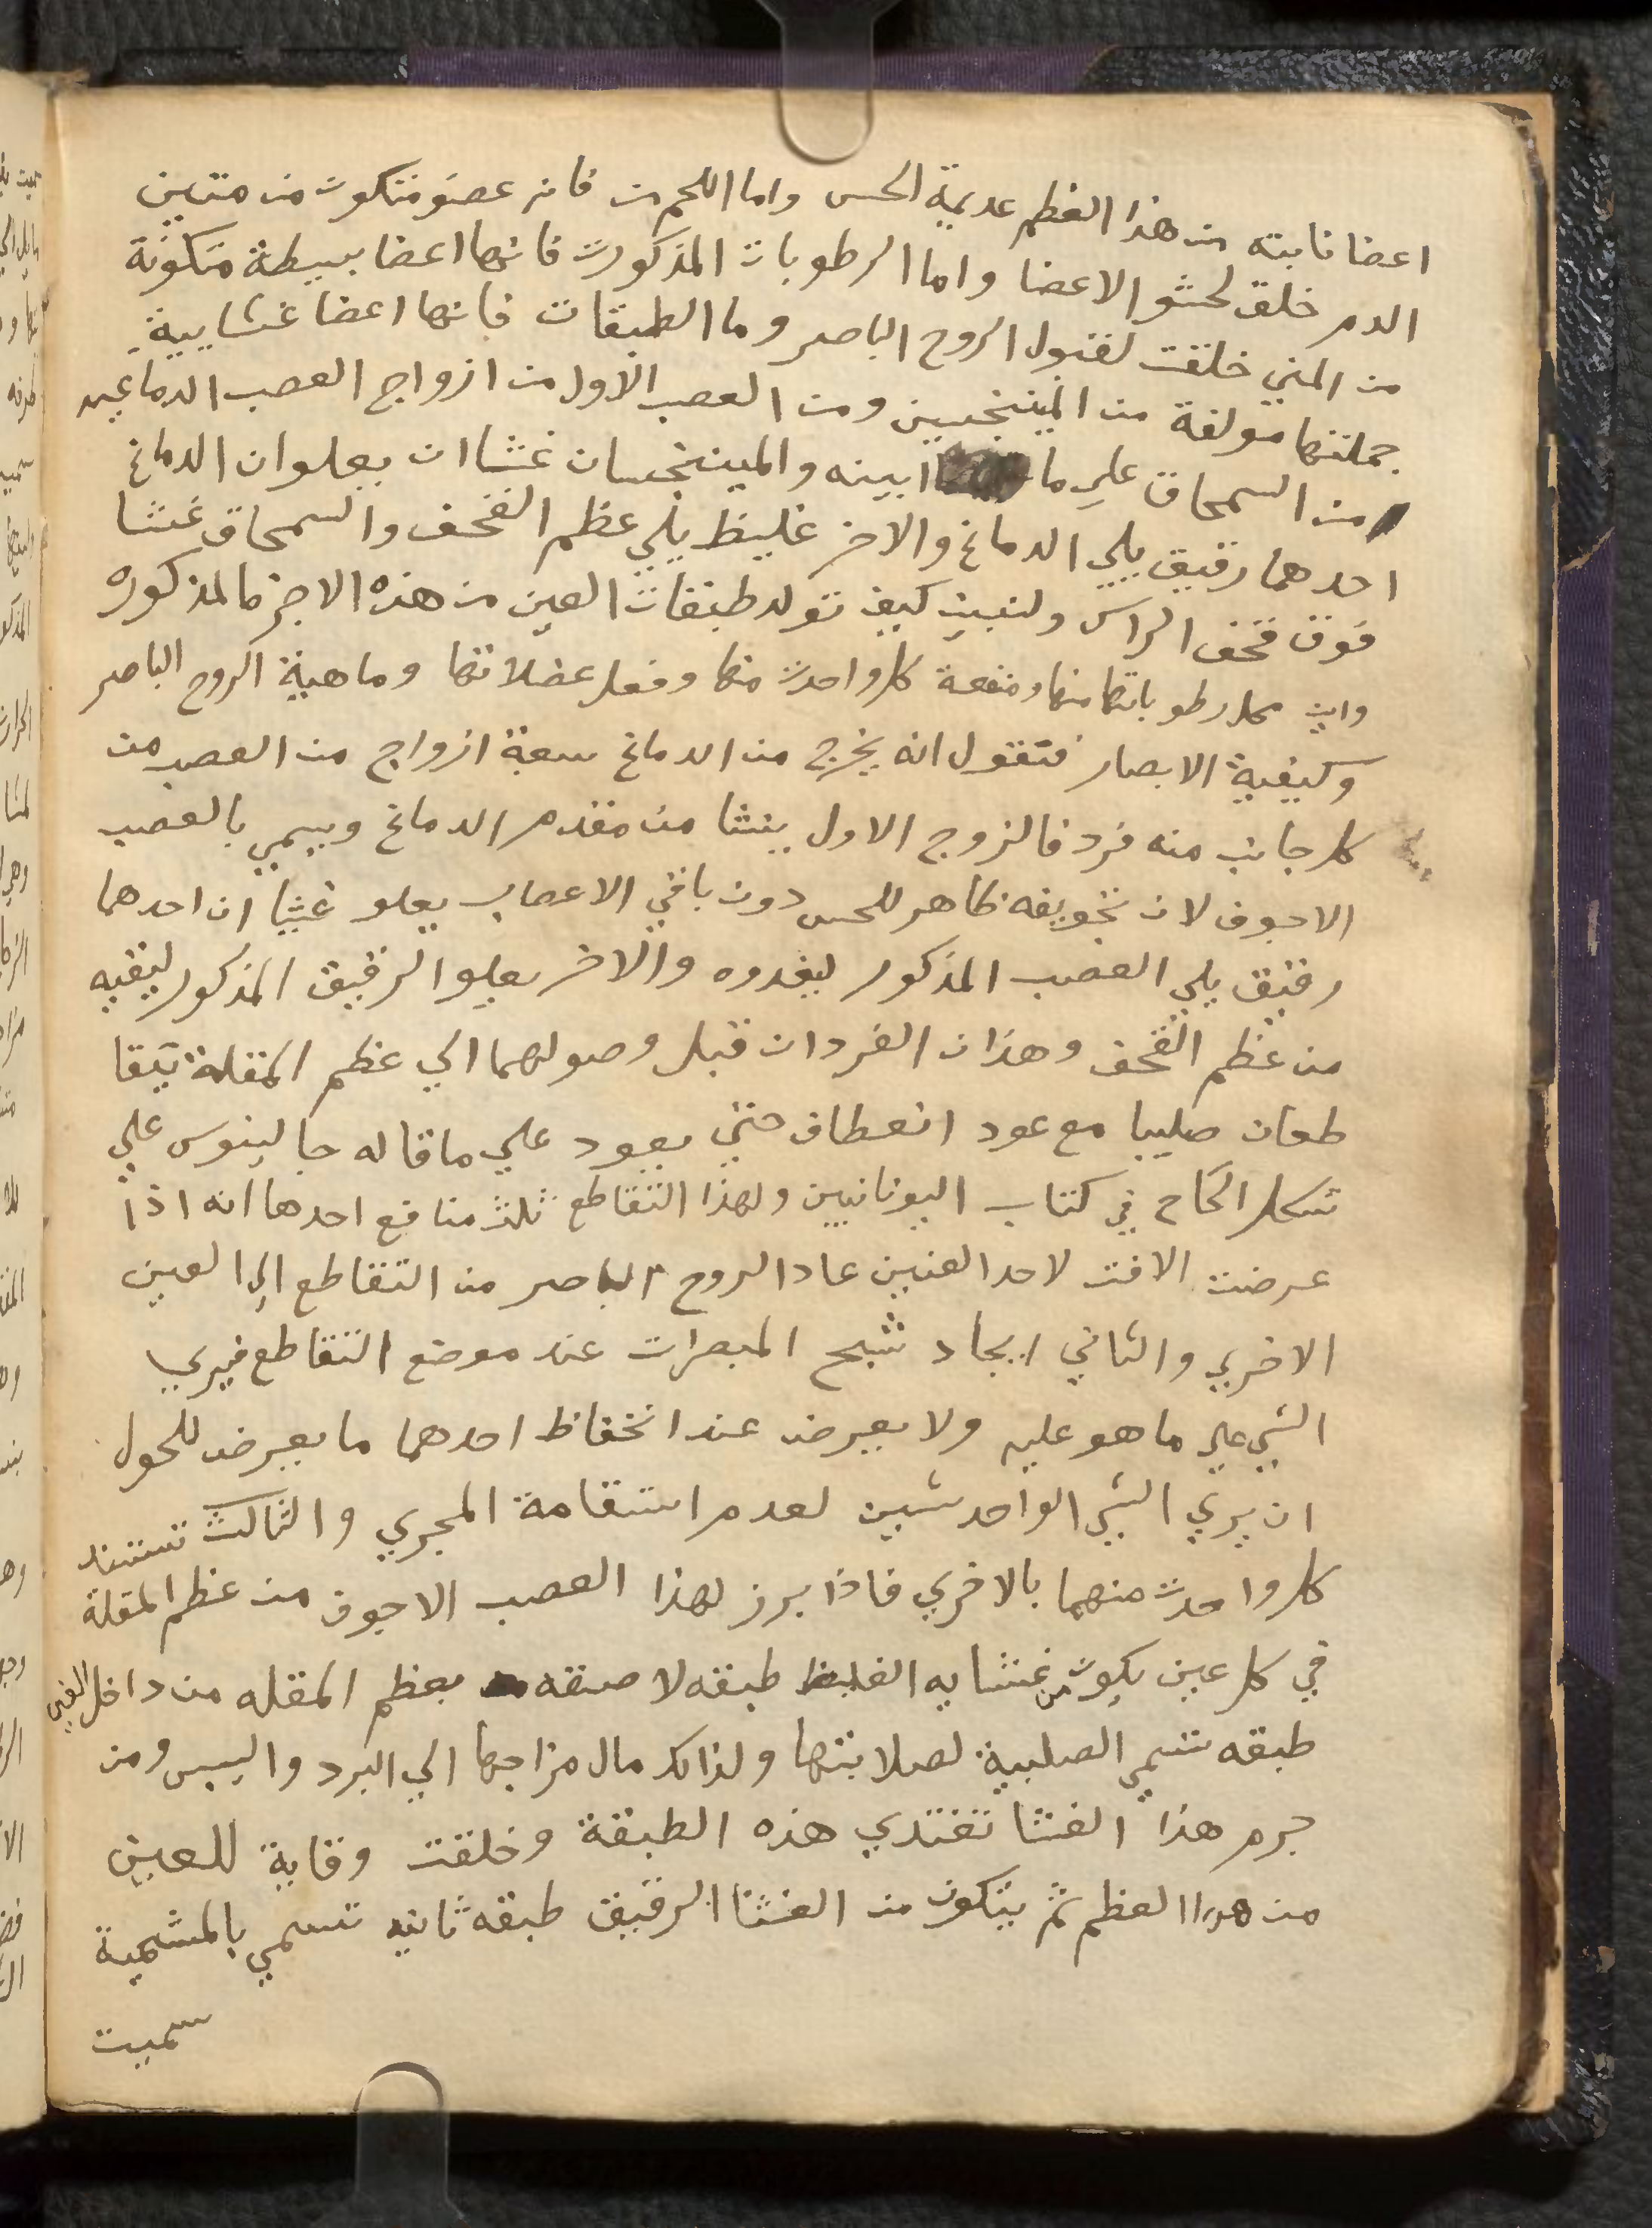 اعضا نابته من هذا العظم عديمة الحس واما اللحم من فانه عضو متكون من متين
الدم خلق لحشو الاعضا واما الرطوبات المذكورت فانها اعضا بسيطة متكونة
من المني خلقت لقبول الروح الباصر وما الطبقات فانها اعضا غشاييية
جملتها مولفة من المينجسين ومن العصب الاول من ازواج العصب الدماغيه
من السمحاق علي ما ابينه والمينجسان غشاان يعلوان الدماغ
احدهما رقيق يلي الدماغ والاخر غليظ يلي عظم القحف والسمحاق غشا
فوق قحف الراس ولنبين كيف تولد طبقات العين من هذه الاجزا المذكوره
واين محل رطوباتها منها ومنفعة كل واحدت منها وفعل عضلاتها وماهية الروح الباصر
وكيفية الابصار فنقول انه يخرج من الدماغ سبعة ازواج من العصب من
كل جانب منه فرد فالزوج الاول ينشا من مقدم الدماغ ويسمي بالعصب
الاجوف لان تجويفه ظاهر للحس دون باقي الاعصاب يعلو غشاان احدهما
رقيق يلي العصب المذكور ليغدوه والاخر يعلو الرقيق المذكور ليقيه
من عظم القحف وهذان الفردان قبل وصولهما الي عظم المقلة يتقا
طعان صليبا مع عود انعطاف حتي يعود علي ما قاله جالينوس علي
شكل الحاح في كتاب اليونانيين ولهذا التقاطع ثلث منافع احدها انه اذا
عرضت الافت لاحد العنين عاد الروح الباصر من التقاطع الي العين
الاخري والثاني ايجاد شبح المبصرات عند موضع التقاطع فيري
الشي علي ما هو عليه ولا يعرض عند انخفاظ احدهما ما يعرض للحول
ان يري الشي الواحد شيين لعدم استقامة المجري والثالث تستند
كل واحدت منهما بالاخري فاذا برز لهذا العصب الاجوف من عظم المقلة
في كل عين يكون من غشايه الغليظ طبقه لاصقه بعظم المقله من داخل العين
طبقه تسمي الصلبية لصلابتها ولذالك مال مزاجها الي البرد واليبس ومن
جرم هذا الغشا تغتدي هذه الطبقة وخلقت وقاية للعين
من هدا العظم ثم يتكون من الغشا الرقيق طبقه ثانيه تسمي بالمشيمية
سميت